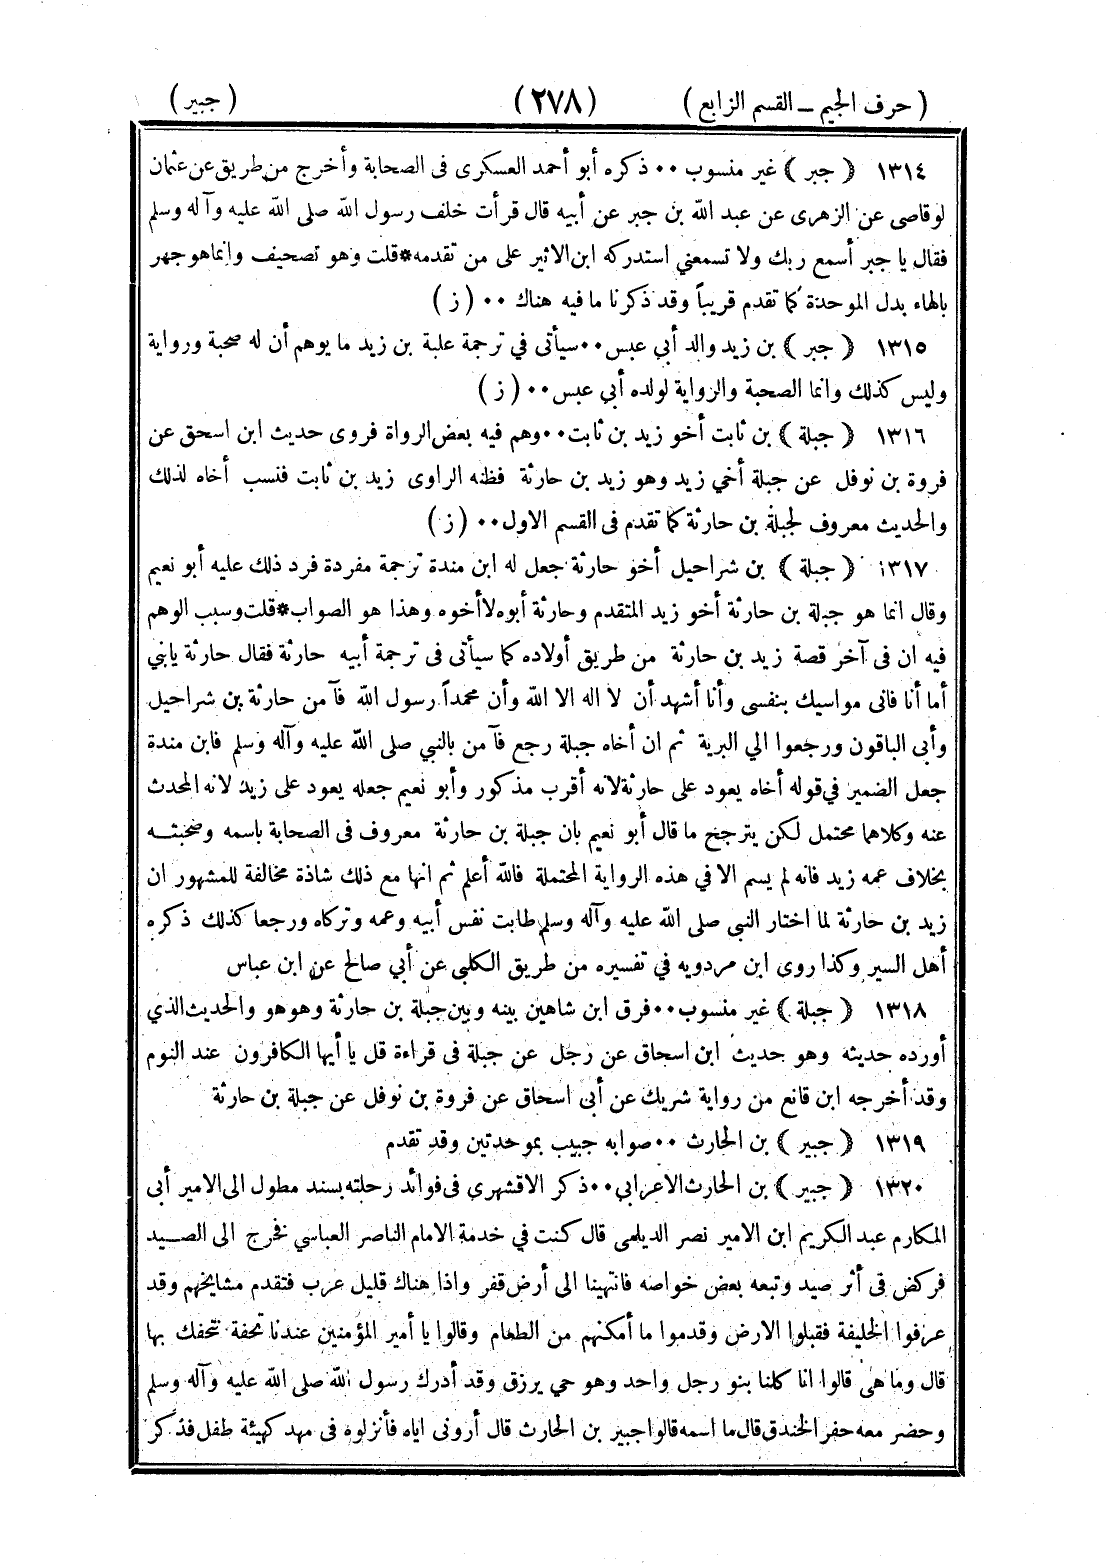 ( حرف الجيم ــ القسم الرابع ) (٢٧٨) ( جبير )
١٣١٤ ( جبر ) غير منسوب ٠٠ ذكره أبو أحمد العسكرى فى الصحابة وأخرج من طريق عن عثمان
لوقاصى عن الزهرى عن عبد الله بن جبر عن أبيه قال قرأت خلف رسول الله صلى الله عليه وآله وسلم
فقال يا جبر أسمع ربك ولا تسمعني استدركه ابن الاثير على من تقدمه*قلت وهو تصحيف وانما هو جهر
بالهاء بدل الموحدة كما تقدم قريباً وقد ذكرنا ما فيه هناك ٠٠ ( ز )
١٣١٥ ( جبر ) بن زيد والد أبي عبس٠٠سيأتى في ترجمة علبة بن زيد ما يوهم أن له صحبة ورواية
وليس كذلك وانما الصحبة والرواية لولده أبي عبس٠٠ ( ز )
١٣١٦ ( جبلة ) بن ثابت أخو زيد بن ثابت٠٠وهم فيه بعض الرواة فروى حديث ابن اسحق عن
فروة بن نوفل عن جبلة أخي زيد وهو زيد بن حارثة فظنه الراوى زيد بن ثابت فنسب أخاه لذلك
والحديث معروف لجبلة بن حارثة كما تقدم فى القسم الاول٠٠ ( ز )
١٣١٧ ( جبلة ) بن شراحيل أخو حارثة جعل له ابن مندة ترجمة مفردة فرد ذلك عليه أبو نعيم
وقال انما هو جبلة بن حارثة أخو زيد المتقدم وحارثة أبوه لاأخوه وهذا هو الصواب*قلت وسبب الوهم
فيه ان فى آخر قصة زيد بن حارثة من طريق أولاده كما سيأتى فى ترجمة أبيه حارثة فقال حارثة يابني
أما أنا فانى مواسيك بنفسى وأنا أشهد أن لا اله الا الله وأن محمداً رسول الله فآمن حارثة بن شراحيل
وأبى الباقون ورجعوا الي البرية ثم ان أخاه جبلة رجع فآمن بالنبي صلى الله عليه وآله وسلم فابن مندة
جعل الضمير في قوله أخاه يعود على حارثة لانه أقرب مذكور وأبو نعيم جعله يعود على زيد لانه المحدث
عنه وكلاهما محتمل لكن يترجح ما قال أبو نعيم بان جبلة بن حارثة معروف فى الصحابة باسمه وصحبتــه
بخلاف عمه زيد فانه لم يسم الا في هذه الرواية المحتملة فالله أعلم ثم انها مع ذلك شاذة مخالفة للمشهور ان
زيد بن حارثة لما اختار النبى صلى الله عليه وآله وسلم طابت نفس أبيه وعمه وتركاه ورجعا كذلك ذكره
أهل السير وكذا روى ابن مردويه في تفسيره من طريق الكلبى عن أبي صالح عن ابن عباس
١٣١٨ ( جبلة ) غير منسوب٠٠فرق ابن شاهين بينه وبين جبلة بن حارثة وهو هو والحديث الذي
أورده حديثه وهو حديث ابن اسحاق عن رجل عن جبلة فى قراءة قل يا أيها الكافرون عند النوم
وقد أخرجه ابن قانع من رواية شريك عن أبى اسحاق عن فروة بن نوفل عن جبلة بن حارثة
١٣١٩ ( جبير ) بن الحارث ٠٠صوابه جبيب بموحدتين وقد تقدم
١٣٢٠ ( جبير ) بن الحارث الاعرابي٠٠ذكر الاقشهرى فى فوائد رحلته بسند مطول الى الامير أبى
المكارم عبد الكريم ابن الامير نصر الديلمى قال كنت في خدمة الامام الناصر العباسي فخرج الى الصــيد
فركض فى أثر صيد وتبعه بعض خواصه فانتهينا الى أرض قفر واذا هناك قليل عرب فتقدم مشايخهم وقد
عرفوا الخليفة فقبلوا الارض وقدموا ما أمكنهم من الطعام وقالوا يا أمير المؤمنين عندنا تحفة نتحفك بها
قال وما هى قالوا انا كلنا بنو رجل واحد وهو حي يرزق وقد أدرك رسول الله صلى الله عليه وآله وسلم
وحضر معه حفر الخندق قال ما اسمه قالوا جبير بن الحارث قال أرونى اياه فأنزلوه فى مهد كهيئة طفل فذكر